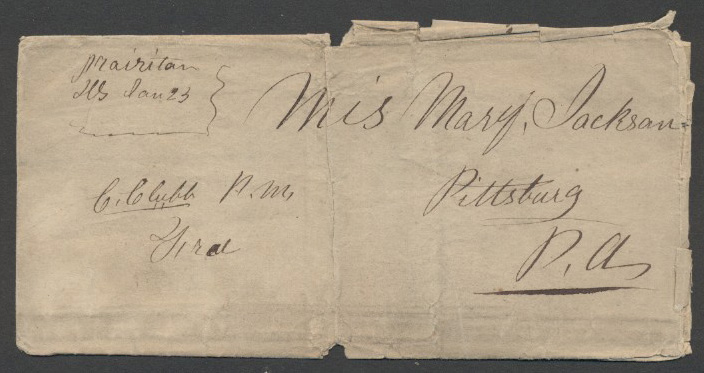 Prairiton
Ills Jan 23
C. Clubb P. M,
Free
Mis Mary, Jackson
Pittsburg
P. A